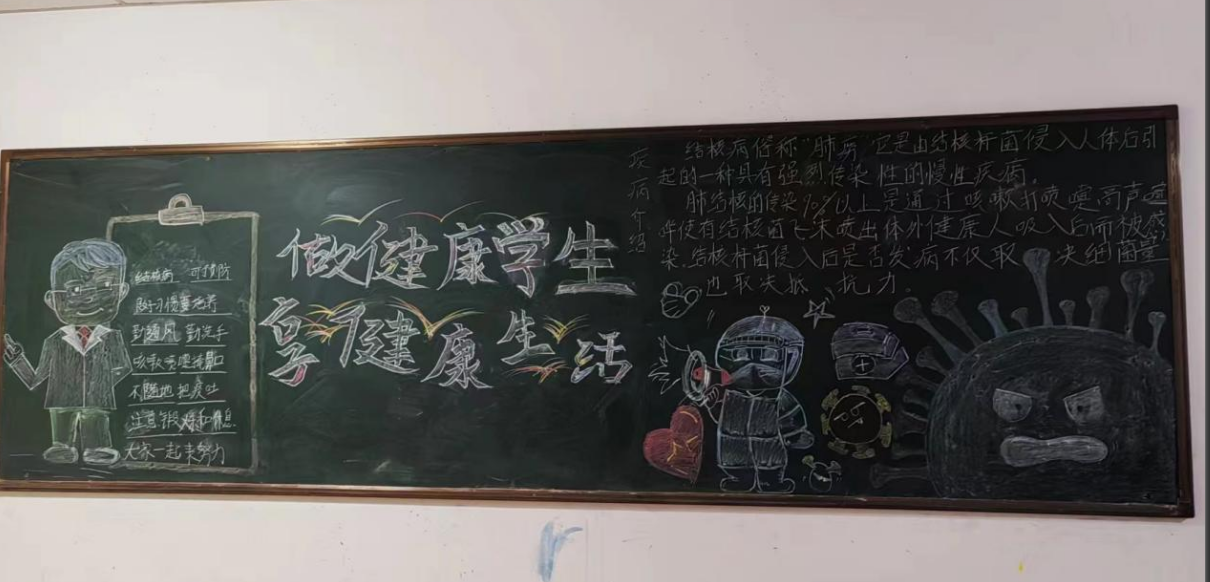 结核病 可预防
良好习惯要培养
勤通风 勤洗手
咳嗽喷嚏掩鼻口
不随地把痰吐
注意锻炼和休息
大家一起来努力
做健康学生
享健康生活
疾病介绍
结核病俗称"肺痨"它是由结核杆菌侵入人体后引
起的一种具有强烈传染性的慢性疾病,
肺结核的传染90%以上是通过咳嗽打喷嚏高声
使有结核菌飞沫喷出体外健康人吸入后而被感
染,结核杆菌侵入后是否发病不仅取决细菌量
也取决抵抗力。